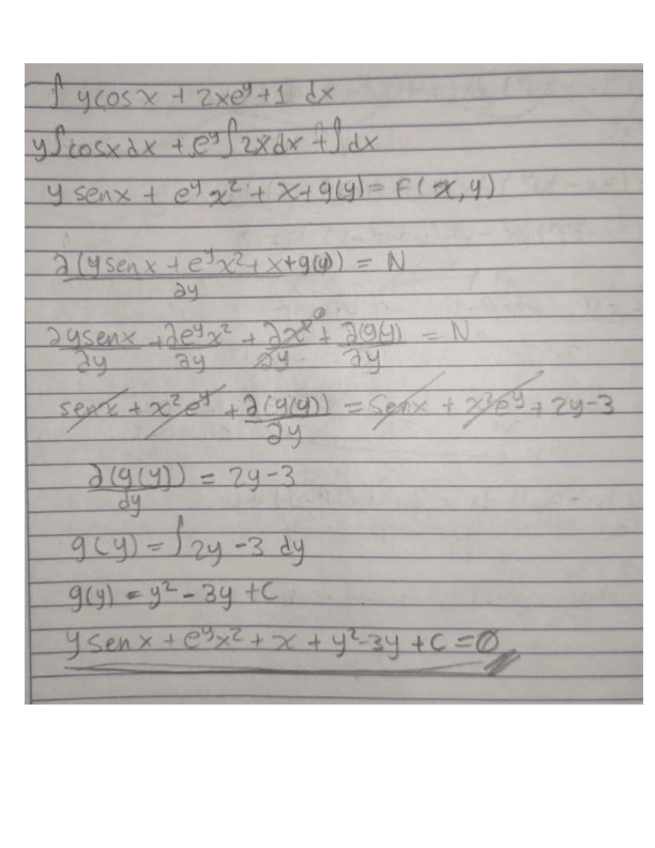 ∫ ycosx + 2xe^y + 1 dx
y∫cosxdx + e^y∫2xdx + ∫dx
y senx + e^y x² + x + g(y) = F(x,y)
∂(ysenx + e^y x² + x + g(y))/∂y = N
∂ysenx/∂y + ∂e^y x²/∂y + ∂x/∂y⁰ + ∂(g(y))/∂y = N
senx + x²e^y + ∂(g(y))/∂y = senx + x²e^y + 2y-3
∂(g(y))/dy = 2y-3
g(y) = ∫2y-3 dy
g(y) = y² - 3y + C
ysenx + e^y x² + x + y² - 3y + C = 0